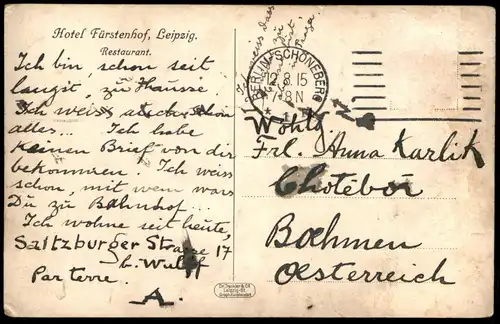 Hotel Fürstenhof, Leipzig.
Restaurant.
Ich bin, schon seit
langst, zu Hause
Ich weiss aber schon
alles... Ich habe
keinen Brief von dir
bekommen. Ich weiss
schon, mit wem wars
Du zu Bahnhof...
Ich wohne seit heute,
Saltzburger Strasse 17
b. Wulff
Parterre.
A.
Ich weiss dass
zu
BERLIN-SCHÖNEBERG
12.8.15
7-8N
* 1
Wohlg
Frl. Anna Karlik
Chotěboř
Boehmen
Oesterreich
Dr. Trenkler & Co.
Leipzig-Stö.